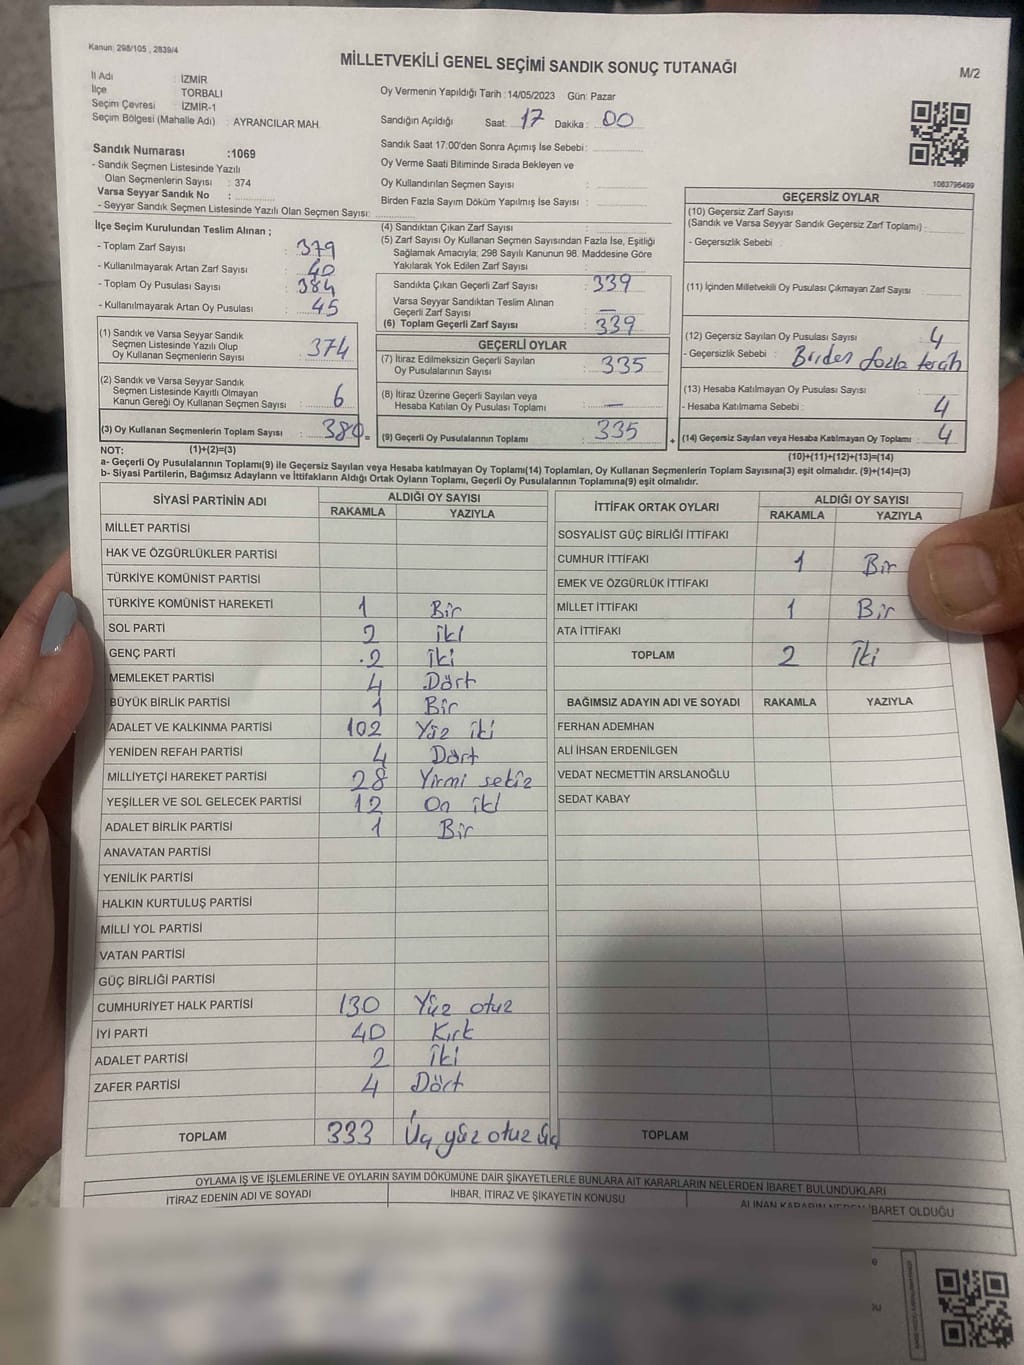 Kanun: 298/105 , 2839/4
MİLLETVEKİLİ GENEL SEÇİMİ SANDIK SONUÇ TUTANAĞI
M/2
İl Adı : İZMİR
İlçe TORBALI
Seçim Çevresi : İZMİR-1
Seçim Bölgesi (Mahalle Adı) : AYRANCILAR MAH.
Oy Vermenin Yapıldığı Tarih : 14/05/2023 Gün: Pazar
Sandığın Açıldığı Saat: 17 Dakika : 00
Sandık Saat 17:00'den Sonra Açımış İse Sebebi :
Oy Verme Saati Bitiminde Sırada Bekleyen ve
Oy Kullandırılan Seçmen Sayısı :
Birden Fazla Sayım Döküm Yapılmış İse Sayısı :
Sandık Numarası :1069
- Sandık Seçmen Listesinde Yazılı
Olan Seçmenlerin Sayısı : 374
Varsa Seyyar Sandık No :
- Seyyar Sandık Seçmen Listesinde Yazılı Olan Seçmen Sayısı:
1083796499
İlçe Seçim Kurulundan Teslim Alınan ;
- Toplam Zarf Sayısı : 379
- Kullanılmayarak Artan Zarf Sayısı : 40
- Toplam Oy Pusulası Sayısı : 384
- Kullanılmayarak Artan Oy Pusulası : 45
(1) Sandık ve Varsa Seyyar Sandık
Seçmen Listesinde Yazılı Olup
Oy Kullanan Seçmenlerin Sayısı : 374
(2) Sandık ve Varsa Seyyar Sandık
Seçmen Listesinde Kayıtlı Olmayan
Kanun Gereği Oy Kullanan Seçmen Sayısı : 6
(3) Oy Kullanan Seçmenlerin Toplam Sayısı : 380 =
(4) Sandıktan Çıkan Zarf Sayısı :
(5) Zarf Sayısı Oy Kullanan Seçmen Sayısından Fazla İse, Eşitliği
Sağlamak Amacıyla, 298 Sayılı Kanunun 98. Maddesine Göre
Yakılarak Yok Edilen Zarf Sayısı :
Sandıkta Çıkan Geçerli Zarf Sayısı : 339
Varsa Seyyar Sandıktan Teslim Alınan
Geçerli Zarf Sayısı : —
(6) Toplam Geçerli Zarf Sayısı : 339
GEÇERLİ OYLAR
(7) İtiraz Edilmeksizin Geçerli Sayılan
Oy Pusulalarının Sayısı : 335
(8) İtiraz Üzerine Geçerli Sayılan veya
Hesaba Katılan Oy Pusulası Toplamı : —
(9) Geçerli Oy Pusulalarının Toplamı : 335 +
GEÇERSİZ OYLAR
(10) Geçersiz Zarf Sayısı
(Sandık ve Varsa Seyyar Sandık Geçersiz Zarf Toplamı) :
- Geçersizlik Sebebi :
(11) İçinden Milletvekili Oy Pusulası Çıkmayan Zarf Sayısı :
(12) Geçersiz Sayılan Oy Pusulası Sayısı : 4
- Geçersizlik Sebebi : Birden fazla tercih
(13) Hesaba Katılmayan Oy Pusulası Sayısı :
- Hesaba Katılmama Sebebi : 4
(14) Geçersiz Sayılan veya Hesaba Katılmayan Oy Toplamı : 4
NOT: (1)+(2)=(3) (10)+(11)+(12)+(13)=(14)
a- Geçerli Oy Pusulalarının Toplamı(9) ile Geçersiz Sayılan veya Hesaba katılmayan Oy Toplamı(14) Toplamları, Oy Kullanan Seçmenlerin Toplam Sayısına(3) eşit olmalıdır. (9)+(14)=(3)
b- Siyasi Partilerin, Bağımsız Adayların ve İttifakların Aldığı Ortak Oyların Toplamı, Geçerli Oy Pusulalarının Toplamına(9) eşit olmalıdır.
SİYASİ PARTİNİN ADI ALDIĞI OY SAYISI
RAKAMLA YAZIYLA
MİLLET PARTİSİ
HAK VE ÖZGÜRLÜKLER PARTİSİ
TÜRKİYE KOMÜNİST PARTİSİ
TÜRKİYE KOMÜNİST HAREKETİ 1 Bir
SOL PARTİ 2 iki
GENÇ PARTİ 2 iki
MEMLEKET PARTİSİ 4 Dört
BÜYÜK BİRLİK PARTİSİ 1 Bir
ADALET VE KALKINMA PARTİSİ 102 Yüz iki
YENİDEN REFAH PARTİSİ 4 Dört
MİLLİYETÇİ HAREKET PARTİSİ 28 Yirmi sekiz
YEŞİLLER VE SOL GELECEK PARTİSİ 12 On iki
ADALET BİRLİK PARTİSİ 1 Bir
ANAVATAN PARTİSİ
YENİLİK PARTİSİ
HALKIN KURTULUŞ PARTİSİ
MİLLİ YOL PARTİSİ
VATAN PARTİSİ
GÜÇ BİRLİĞİ PARTİSİ
CUMHURİYET HALK PARTİSİ 130 Yüz otuz
İYİ PARTİ 40 Kırk
ADALET PARTİSİ 2 iki
ZAFER PARTİSİ 4 Dört
TOPLAM 333 Üç yüz otuz üç
İTTİFAK ORTAK OYLARI ALDIĞI OY SAYISI
RAKAMLA YAZIYLA
SOSYALİST GÜÇ BİRLİĞİ İTTİFAKI
CUMHUR İTTİFAKI 1 Bir
EMEK VE ÖZGÜRLÜK İTTİFAKI
MİLLET İTTİFAKI 1 Bir
ATA İTTİFAKI
TOPLAM 2 İki
BAĞIMSIZ ADAYIN ADI VE SOYADI RAKAMLA YAZIYLA
FERHAN ADEMHAN
ALİ İHSAN ERDENİLGEN
VEDAT NECMETTİN ARSLANOĞLU
SEDAT KABAY
TOPLAM
OYLAMA İŞ VE İŞLEMLERİNE VE OYLARIN SAYIM DÖKÜMÜNE DAİR ŞİKAYETLERLE BUNLARA AİT KARARLARIN NELERDEN İBARET BULUNDUKLARI
İTİRAZ EDENİN ADI VE SOYADI İHBAR, İTİRAZ VE ŞİKAYETİN KONUSU ALINAN KARARIN NEDEN İBARET OLDUĞU